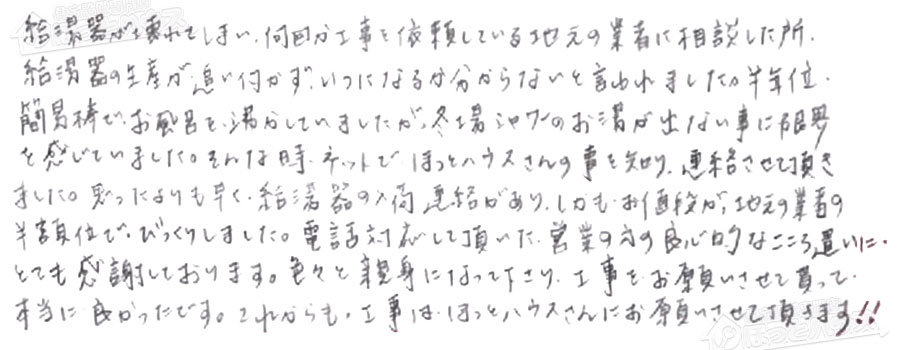 給湯器が壊れてしまい、何回か工事を依頼している地元の業者に相談した所、
給湯器の生産が追い付かず、いつになるか分からないと言われました。半年位、
簡易棒で、お風呂を、湯かしていましたが、冬場シャワーのお湯が出ない事に限界
を感じていました。そんな時、ネットで、ほっとハウスさんの事を知り、連絡させて頂き
ました。思ったよりも早く、給湯器の入荷連絡があり、しかも、お値段が、地元の業者の
半額位で、びっくりしました。電話対応して頂いた、営業の方の良心的なこころ遣いに、
とても感謝しております。色々と親身になって下さり、工事をお願いさせて貰って、
本当に良かったです。これからも、工事は、ほっとハウスさんにお願いさせて頂きます!!